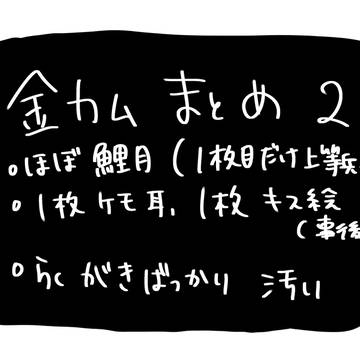 金カム まとめ 2
○ほぼ 鯉月 (1枚目だけ上等兵
○1枚 ケモ耳、1枚 キス絵
(事後
○らくがきばっかり 汚い